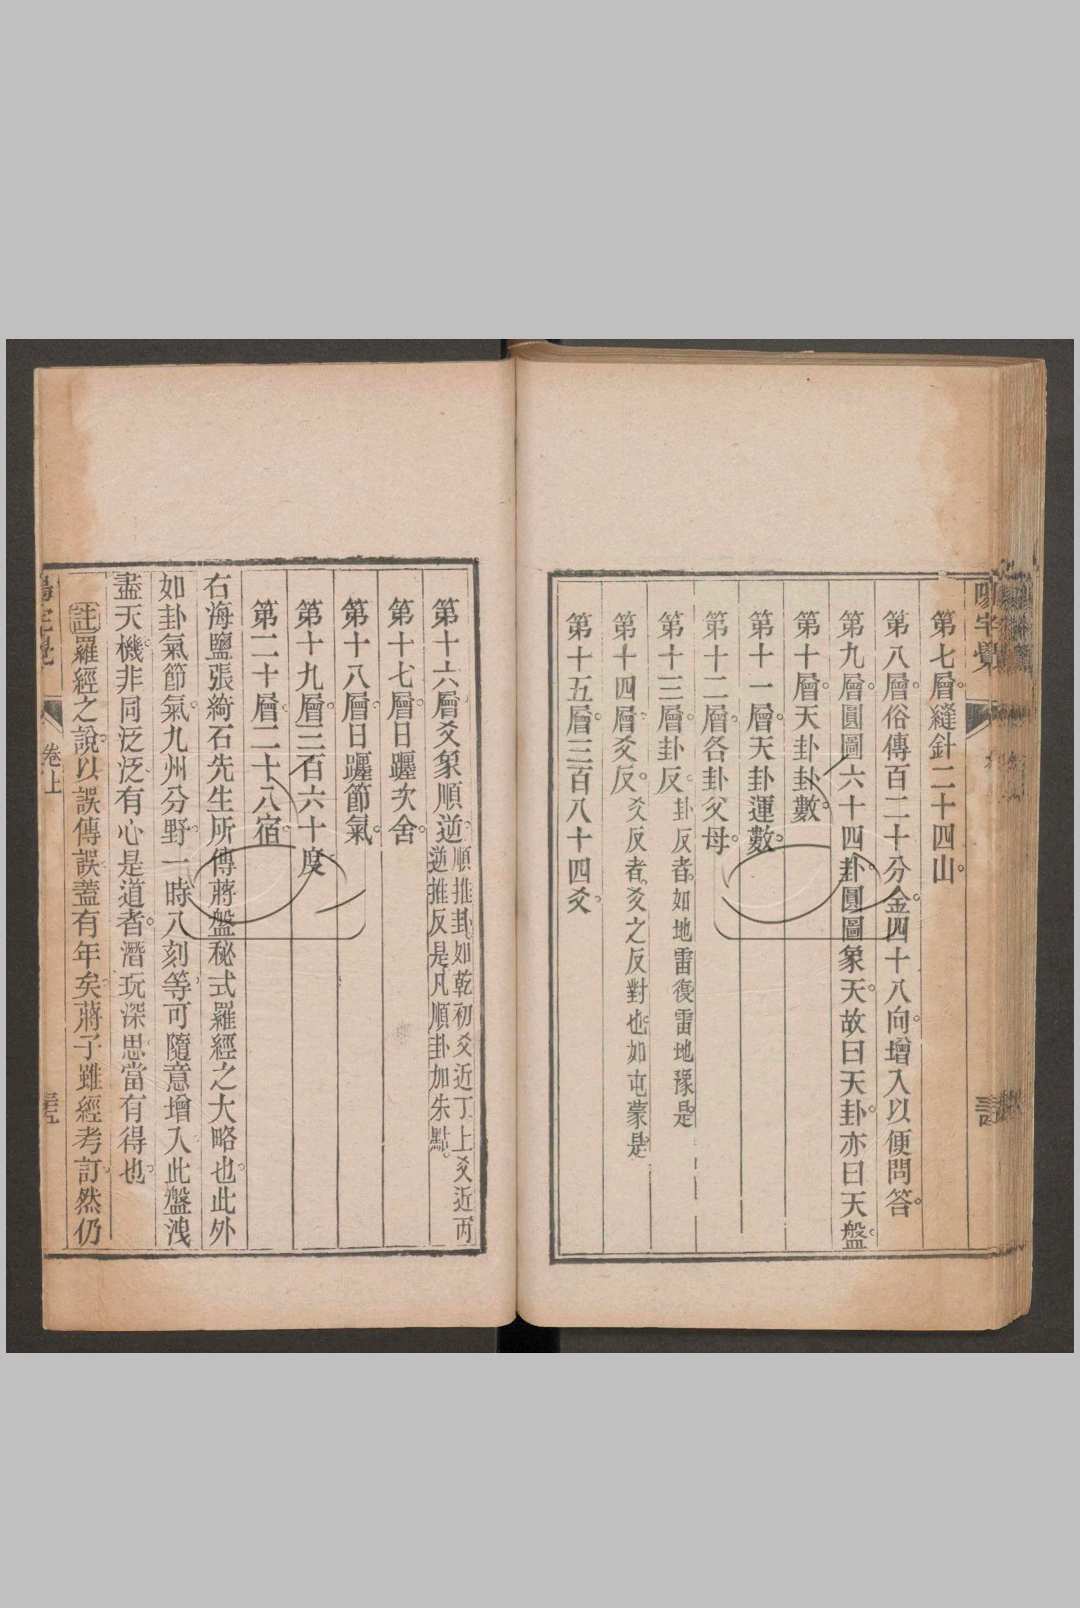 第七層縫針二十四山。
第八層。俗傳百二十分金。四十八向。增入以便問答。
第九層。圓圖六十四卦。圓圖象天。故曰天卦。亦曰天盤。
第十層。天卦卦數。
第十一層。天卦運數。
第十二層。各卦父母。
第十三層。卦反。卦反者。如地雷復雷地豫是。
第十四層。爻反。爻反者。爻之反對也。如屯蒙是。
第十五層。三百八十四爻。
第十六層。爻象順逆。順推卦。如乾初爻近丁上爻近丙
逆推反是。凡順卦加朱點。
第十七層。日躔次舍。
第十八層。日躔節氣。
第十九層。三百六十度
第二十層。二十八宿。
右海鹽張綺石先生所傳蔣盤秘式羅經之大略也。此外
如卦氣節氣。九州分野。一時八刻等。可隨意增入。此盤洩
盡天機。非同泛泛。有心是道者。潛玩深思。當有得也。
註羅經之說。以誤傳誤。蓋有年矣。蔣子雖經考訂。然仍
卷上